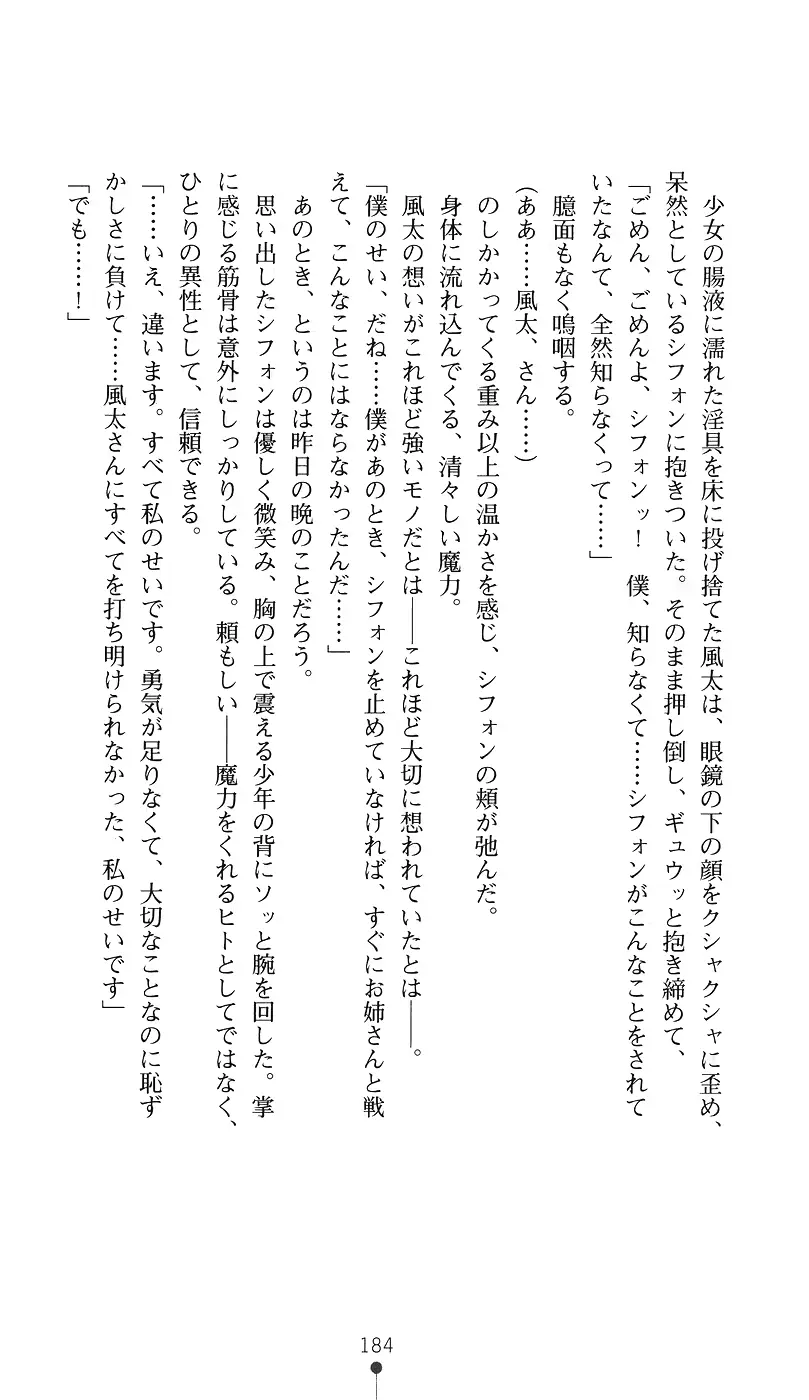 少女の腸液に濡れた淫具を床に投げ捨てた風太は、眼鏡の下の顔をクシャクシャに歪め、
呆然としているシフォンに抱きついた。そのまま押し倒し、ギュウッと抱き締めて、
「ごめん、ごめんよ、シフォンッ！　僕、知らなくて……シフォンがこんなことをされて
いたなんて、全然知らなくって……」
臆面もなく嗚咽する。
(ああ……風太、さん……)
のしかかってくる重み以上の温かさを感じ、シフォンの頬が弛んだ。
身体に流れ込んでくる、清々しい魔力。
風太の想いがこれほど強いモノだとは――これほど大切に想われていたとは――。
「僕のせい、だね……僕があのとき、シフォンを止めていなければ、すぐにお姉さんと戦
えて、こんなことにはならなかったんだ……」
あのとき、というのは昨日の晩のことだろう。
思い出したシフォンは優しく微笑み、胸の上で震える少年の背にソッと腕を回した。掌
に感じる筋骨は意外にしっかりしている。頼もしい――魔力をくれるヒトとしてではなく、
ひとりの異性として、信頼できる。
「……いえ、違います。すべて私のせいです。勇気が足りなくて、大切なことなのに恥ず
かしさに負けて……風太さんにすべてを打ち明けられなかった、私のせいです」
「でも……！」
184